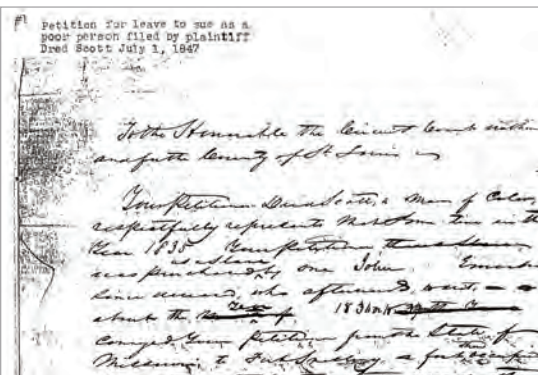 #1
Petition for leave to sue as a
poor person filed by plaintiff
Dred Scott July 1, 1847
To the Honorable the Circuit Court within
and for the County of St Louis
Your Petitioner Dred Scott, a man of Color,
respectfully represents that some time in the
Year 1835 Your Petitioner
as a slave
was purchased by one John Emerson
since deceased, who afterward went,
about the Year 183
conveyed Your Petitioner from the State of
Missouri to Fort Snelling a fort